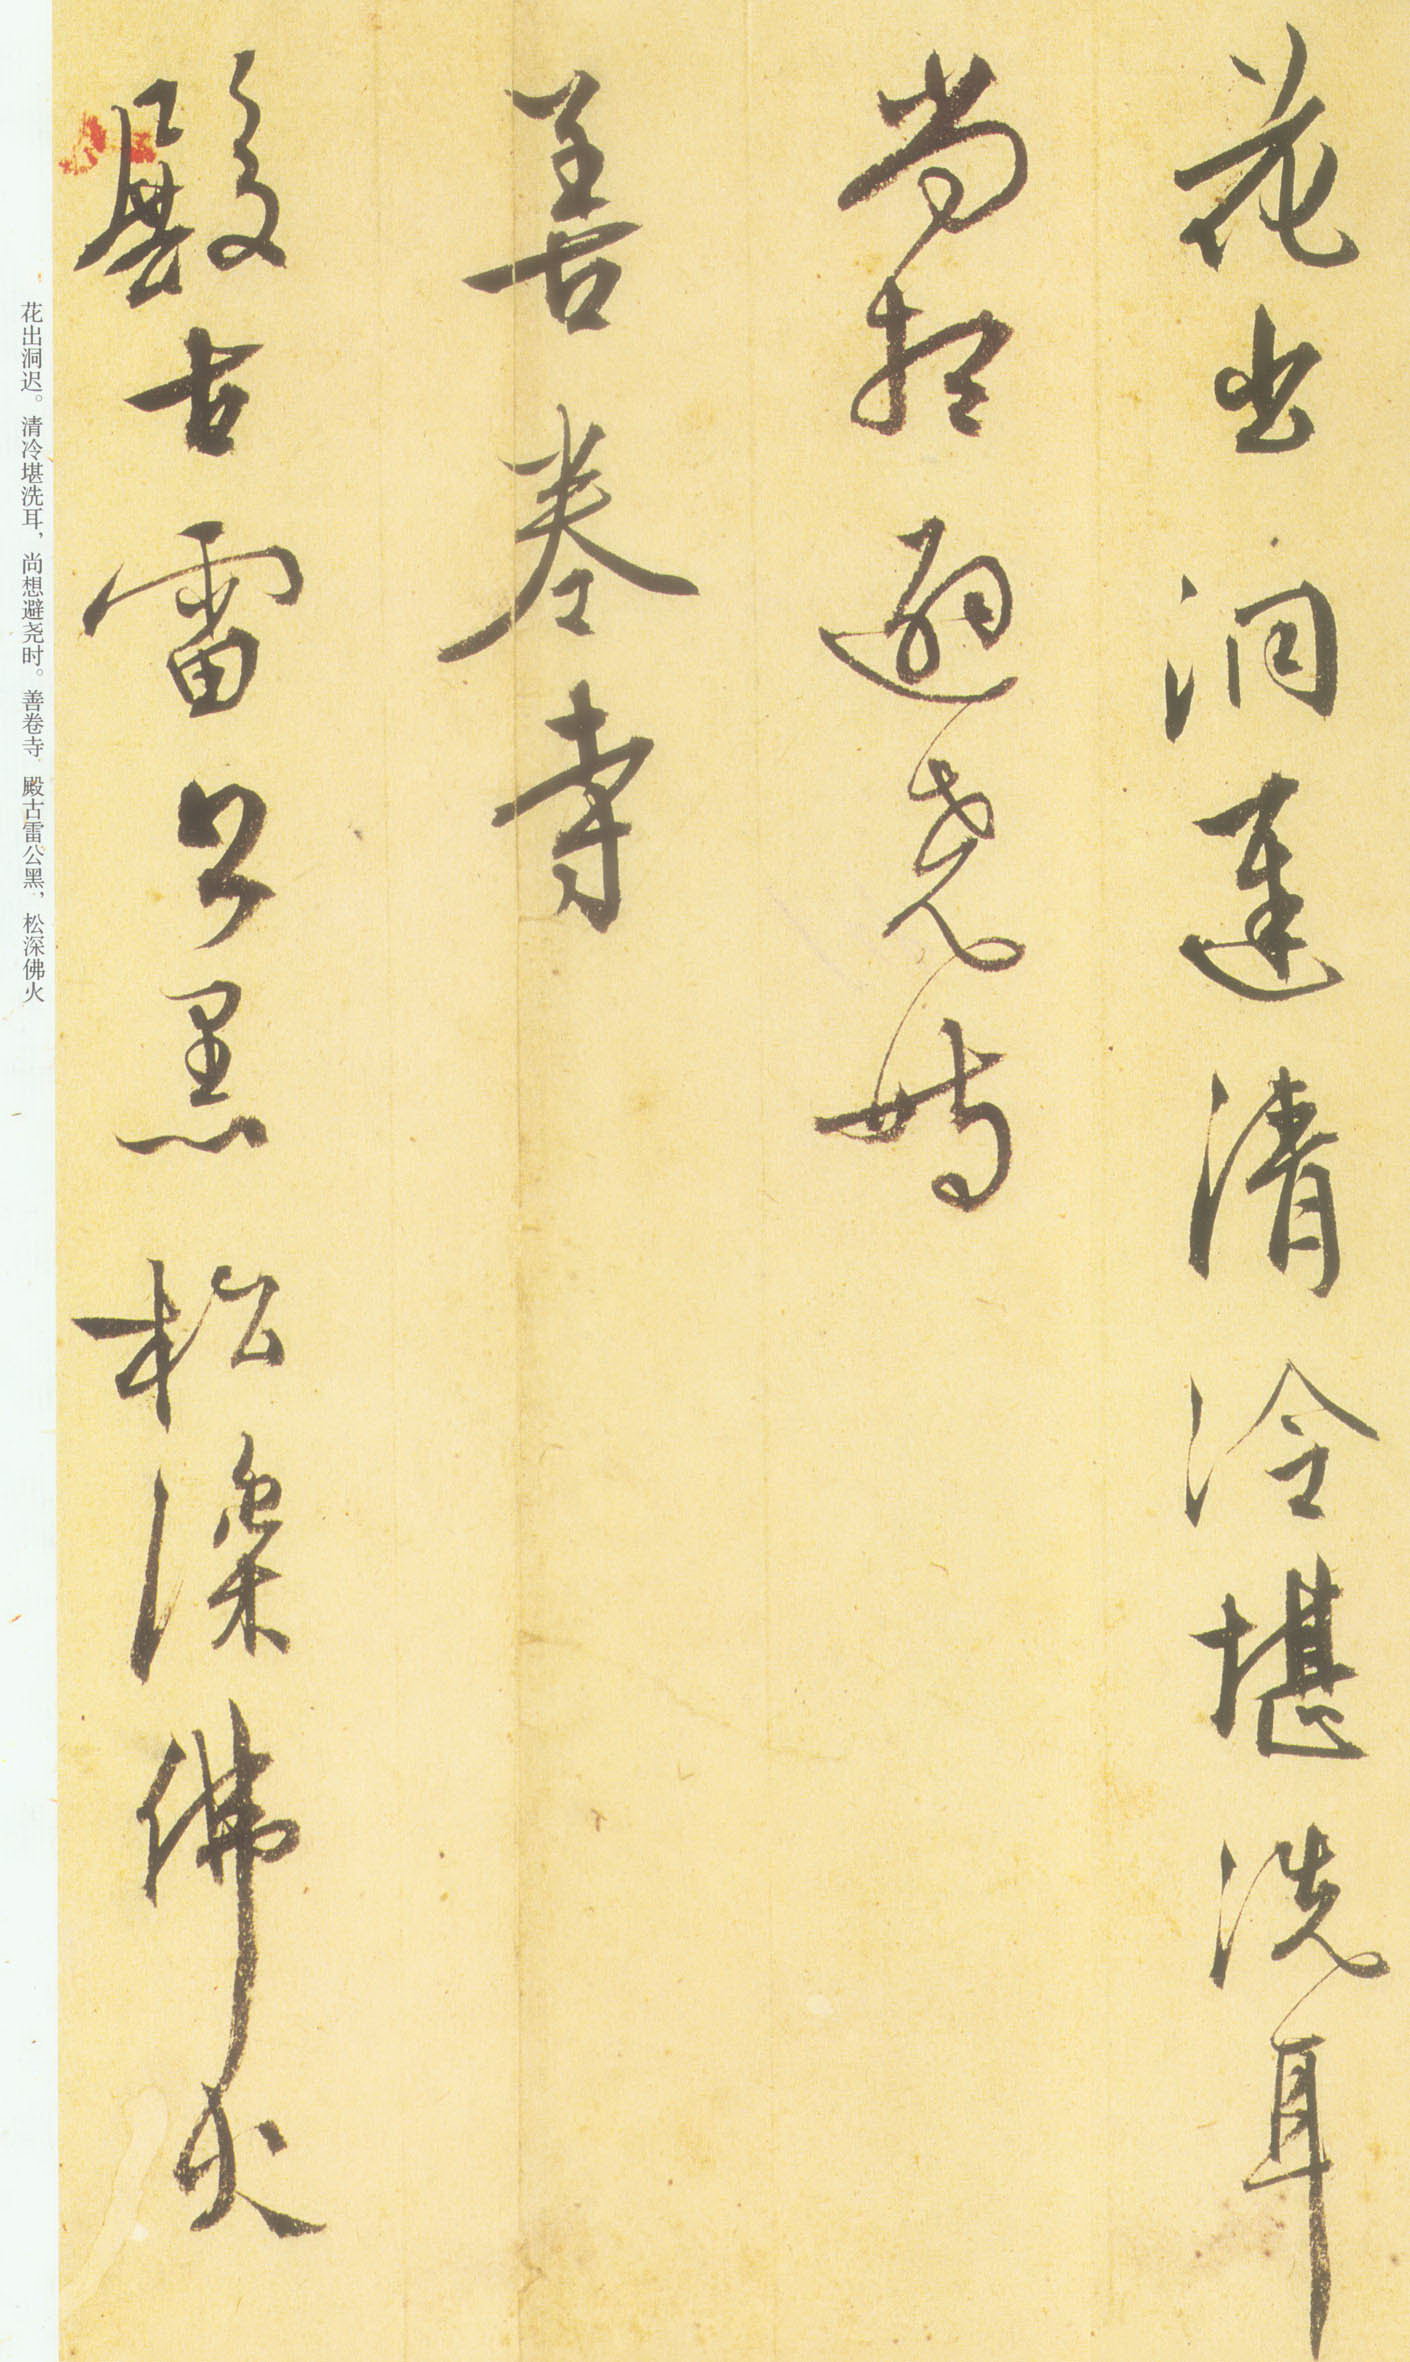 花出洞遲清冷堪洗耳
尚想避堯時
善卷寺
殿古雷公黑松深佛火
花出洞迟。清冷堪洗耳，尚想避尧时。善卷寺 殿古雷公黑，松深佛火